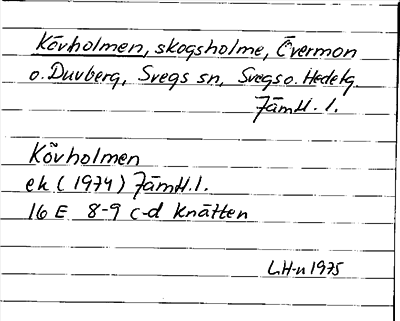 Kövholmen, skogsholme, Övermon
o. Duvberg, Svegs sn, Svegs o. Hede tg
Jämtl. l.
Kövholmen
ek (1974) Jämtl. l.
16 E 8-9 c-d Knätten
L.H-n 1975